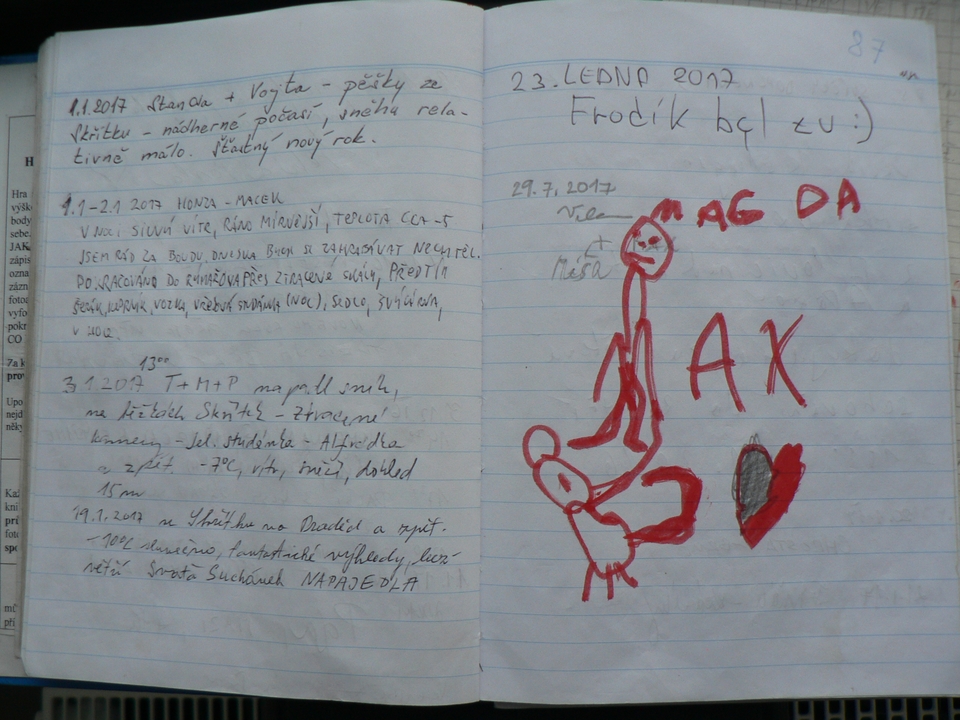 1.1.2017 Standa + Vojta - pěšky ze
Skřítku - nádherné počasí, sněhu rela-
tivně málo. Šťastný nový rok.
1.1-2.1 2017 HONZA - MACEK
V NOCI SILNÝ VÍTR, RÁNO MÍRNĚJŠÍ, TEPLOTA CCA -5
JSEM RÁD ZA BOUDU, DNESKA BYCH SE ZAHRABÁVAT NECHTĚL.
DO RÝMAŘOVA PŘES ZTRACENÉ SKÁLY, PŘEDTÍM
(NOC), SEDLO, ŠVÝCÁRNA,
13⁰⁰
3.1.2017 T+M+P napadl sníh,
na běžkách Skřítek - Ztracené
kameny - Jel. studánka - Alfrédka
a zpět -7°C, vítr, sněží, dohled
15 m
19.1.2017 ze Skřítku na Praděd a zpět.
-10°C slunečno, fantastické výhledy, bez
větří Svaťa Suchánek NAPAJEDLA
87
23. LEDNA 2017
Frodík byl zu :)
29.7.2017
MAGDA
+
Míša
AX